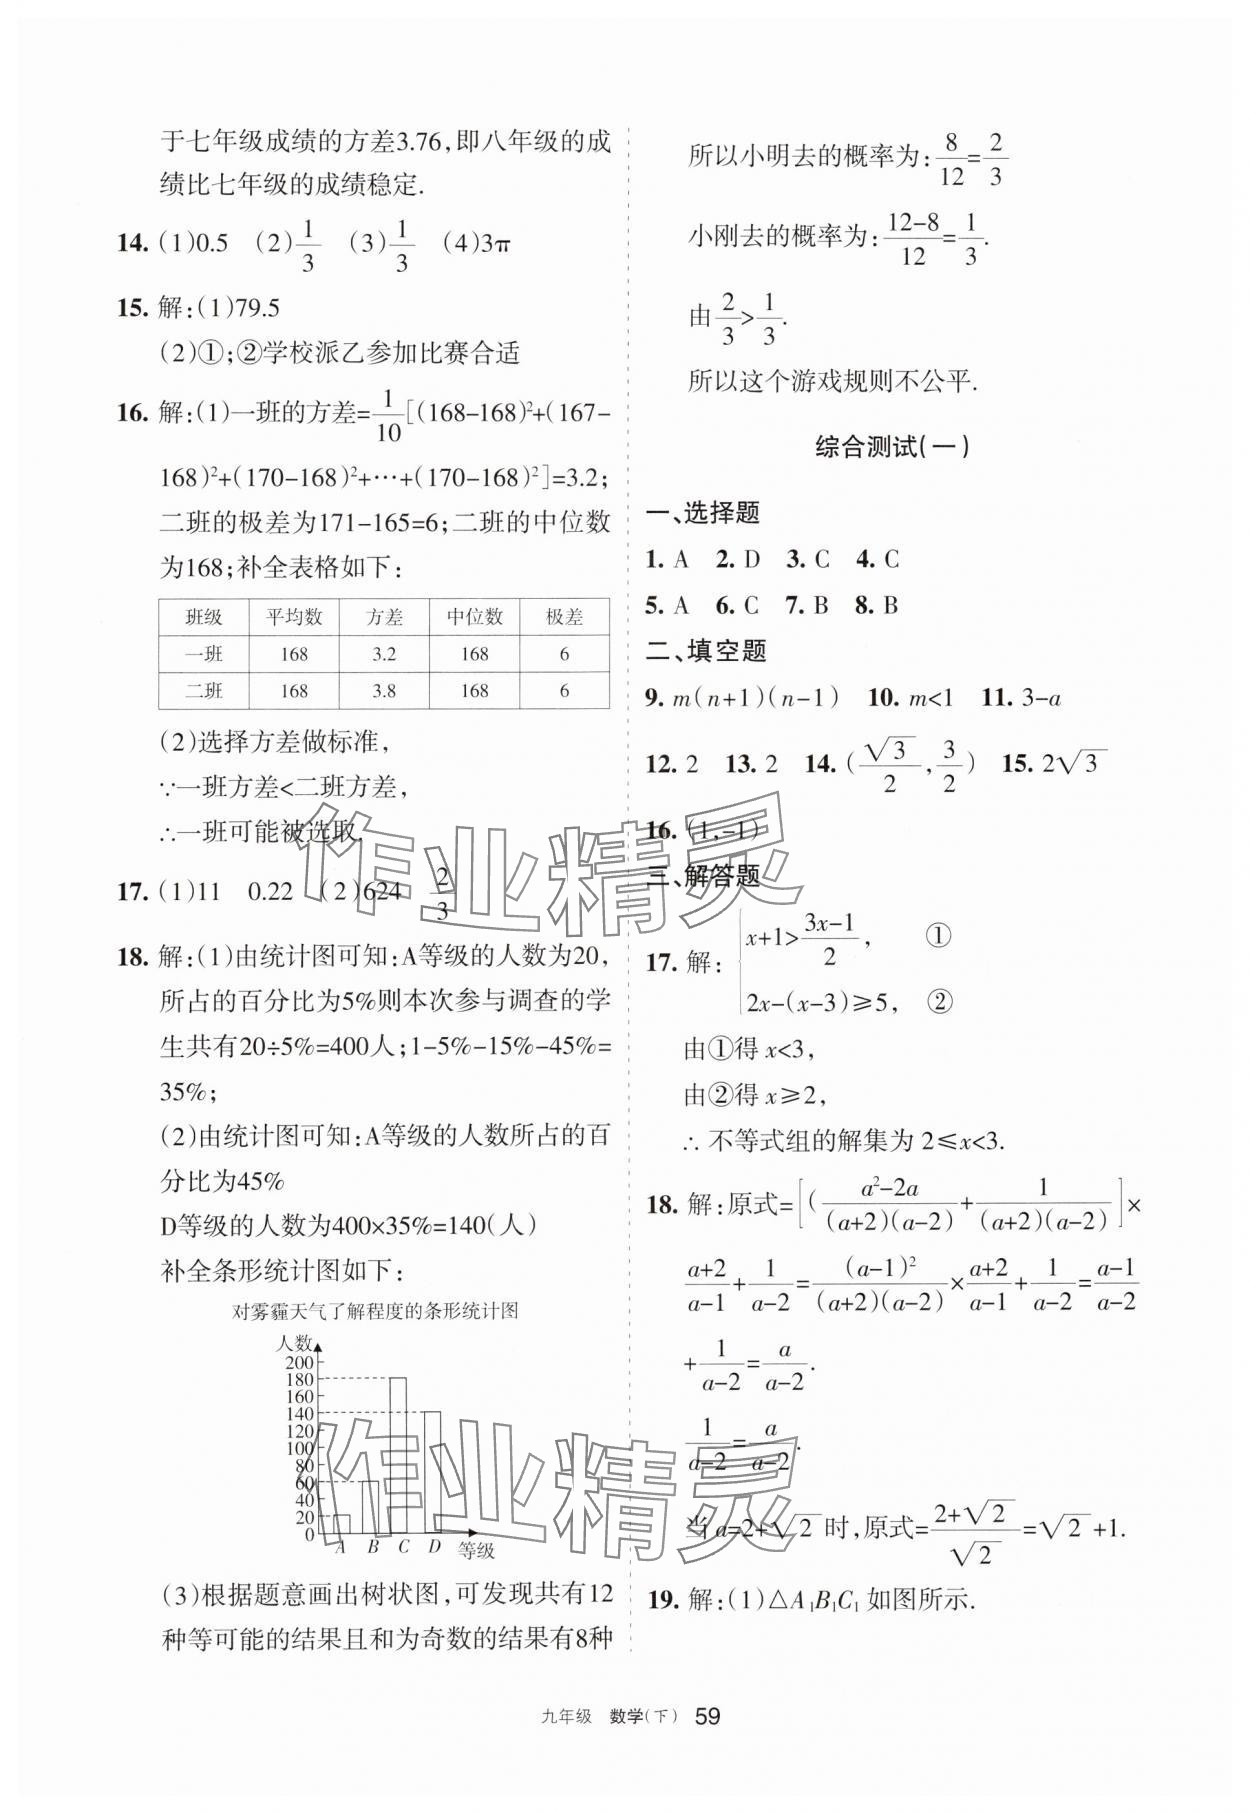 于七年级成绩的方差3.76,即八年级的成
绩比七年级的成绩稳定.
14. (1)0.5 (2)1/3 (3)1/3 (4)3π
15. 解:(1)79.5
(2)①;②学校派乙参加比赛合适
16. 解:(1)一班的方差=1/10[(168-168)²+(167-
168)²+(170-168)²+…+(170-168)²]=3.2;
二班的极差为171-165=6;二班的中位数
为168;补全表格如下:
班级 平均数 方差 中位数 极差
一班 168 3.2 168 6
二班 168 3.8 168 6
(2)选择方差做标准,
∵一班方差<二班方差,
∴一班可能被选取.
17. (1)11 0.22 (2)624 2/3
18. 解:(1)由统计图可知:A等级的人数为20,
所占的百分比为5%则本次参与调查的学
生共有20÷5%=400人;1-5%-15%-45%=
35%;
(2)由统计图可知:A等级的人数所占的百
分比为45%
D等级的人数为400×35%=140(人)
补全条形统计图如下:
对雾霾天气了解程度的条形统计图
人数
200
180
160
140
120
100
80
60
40
20
0
A B C D 等级
(3)根据题意画出树状图,可发现共有12
种等可能的结果且和为奇数的结果有8种
所以小明去的概率为:8/12=2/3
小刚去的概率为:(12-8)/12=1/3.
由2/3>1/3.
所以这个游戏规则不公平.
综合测试(一)
一、选择题
1. A 2. D 3. C 4. C
5. A 6. C 7. B 8. B
二、填空题
9. m(n+1)(n-1) 10. m<1 11. 3-a
12. 2 13. 2 14. (√3/2,3/2) 15. 2√3
16. (1,-1)
三、解答题
17. 解: x+1>(3x-1)/2, ①
2x-(x-3)≥5, ②
由①得 x<3,
由②得 x≥2,
∴ 不等式组的解集为 2≤x<3.
18. 解:原式=[((a²-2a)/((a+2)(a-2))+1/((a+2)(a-2))]×
(a+2)/(a-1)+1/(a-2)=(a-1)²/((a+2)(a-2))×(a+2)/(a-1)+1/(a-2)=(a-1)/(a-2)
+1/(a-2)=a/(a-2).
1/(a-2)=a/(a-2).
当a=2+√2时,原式=(2+√2)/√2=√2+1.
19. 解:(1)△A₁B₁C₁ 如图所示.
九年级 数学(下) 59
作业精灵
作业精灵